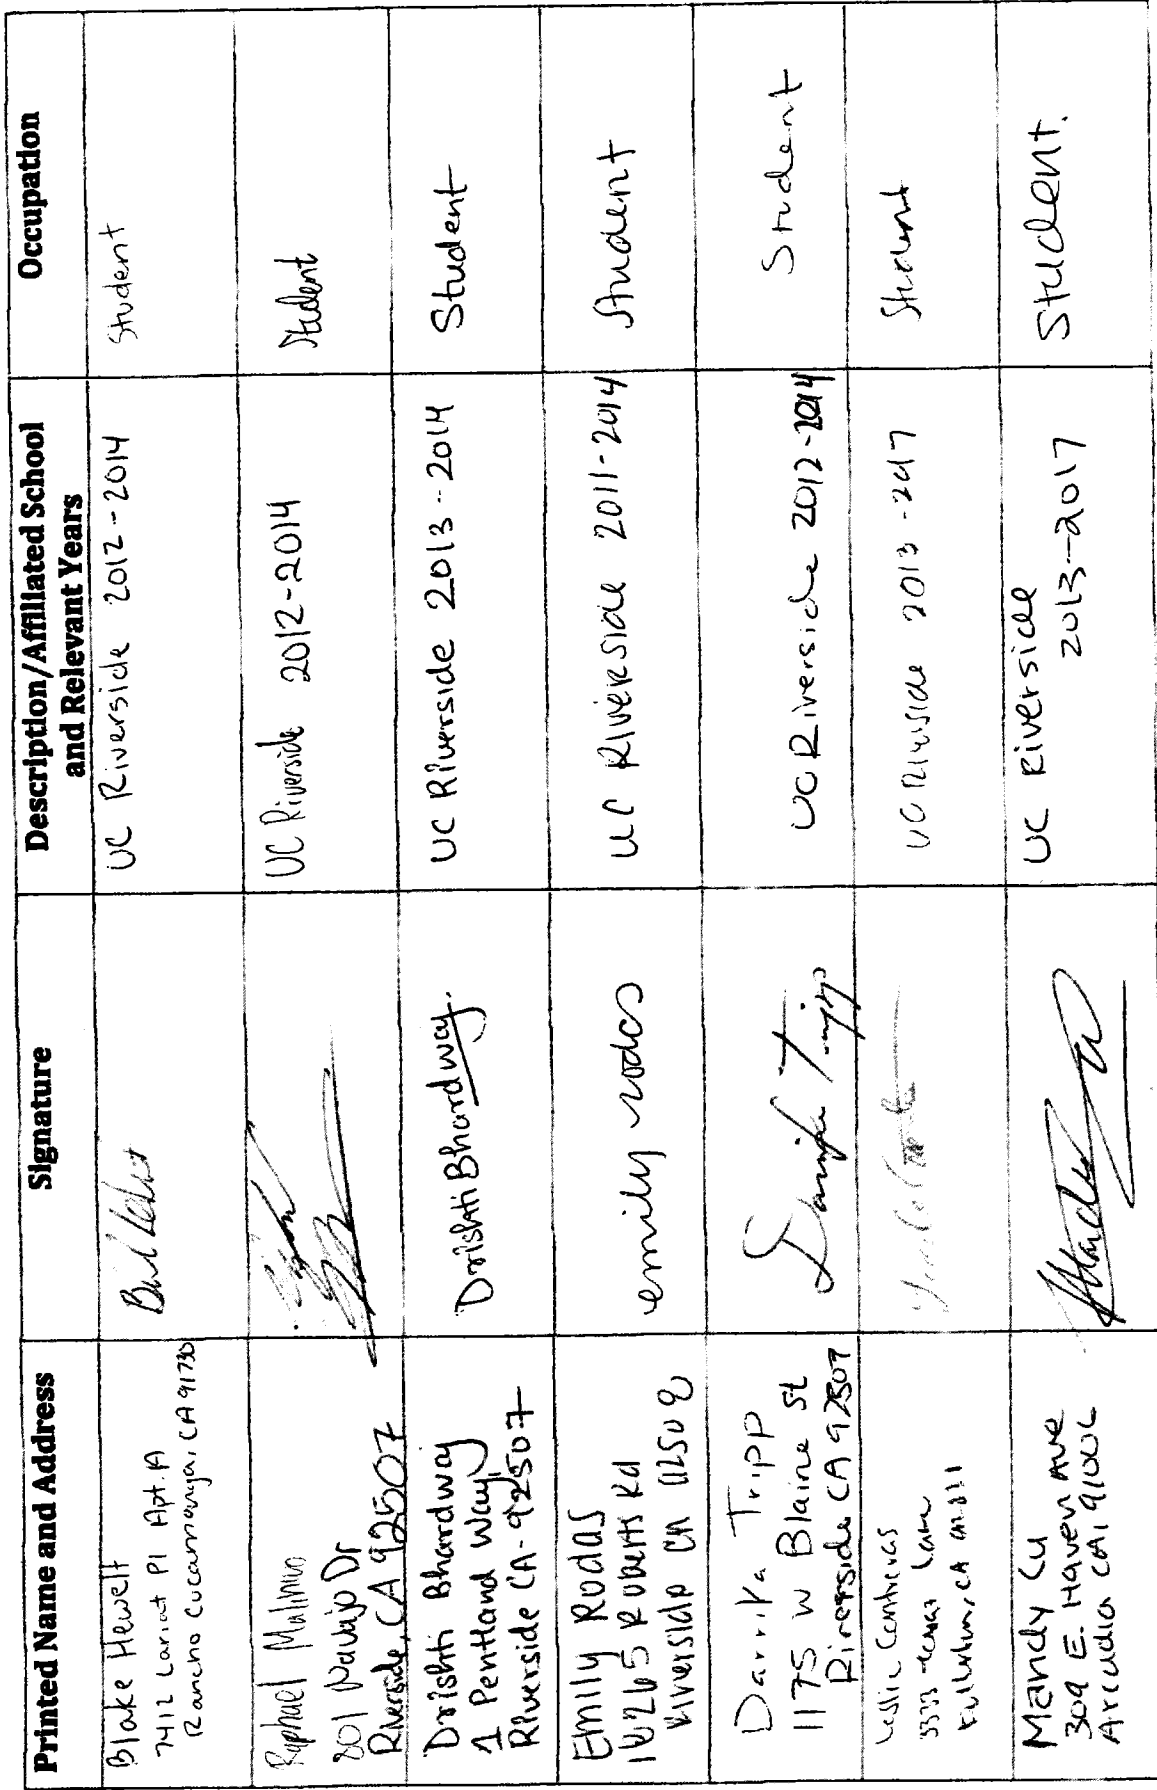 Printed Name and Address
Signature
Description/Affiliated School
and Relevant Years
Occupation
Blake Hewelt
7412 Lariat Pl Apt. A
Rancho Cucamonga, CA 91730
UC Riverside 2012-2014
Student
Raphael
801 Navajo Dr
Riverside, CA 92507
UC Riverside 2012-2014
Student
Drishti Bhardwaj
1 Pentland Way,
Riverside CA-92507
Drishti Bhardwaj.
UC Riverside 2013-2014
Student
Emily Rodas
Roberts Rd
Riverside CA
emily rodas
UC Riverside 2011-2014
Student
Darrika Tripp
1175 W Blaine St
Riverside CA 92507
Darrika Tripp
UC Riverside 2012-2014
Student
Contreras
3333 Lane
CA
UC Riverside 2013-2017
Student
Mandy Lu
309 E. Haven Ave
Arcadia CA, 91006
UC Riverside
2013-2017
Student.